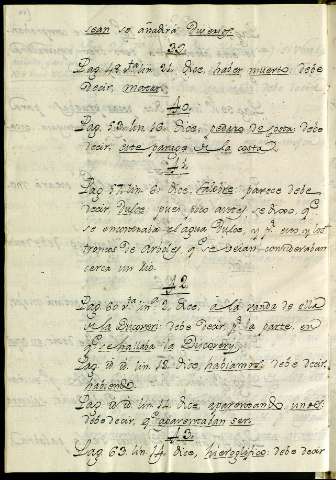 sean se añadirá Dueños.
39.
Pag. 48. vta lin. 21. dice, haber muerto: debe
decir, meter.
40.
Pag. 53. lin. 16. dice, pedazo de costa: debe
decir, este parage de la costa.
41.
Pag. 57. lin. 6. dice, parece debe
decir Dulce pues poco antes se dixo, qe
se encontraba el agua Dulce, y pr. esto y los
troncos de Arboles qe. se veían consideraban
cerca un Rio.
42.
Pag. 60. vta. lin. 2. dice, a la vanda de ella
de la Discovery: debe decir, pr. la parte, en
qe. se hallaba la Discovery.
Pag. lin. 12. dice, habiamos: debe decir,
habiendo.
Pag. lin. 14. dice aparentando, debe decir, qe. aparentaban ser.
43.
Pag. 63. lin. 14. dice, hieroglifico: debe decir